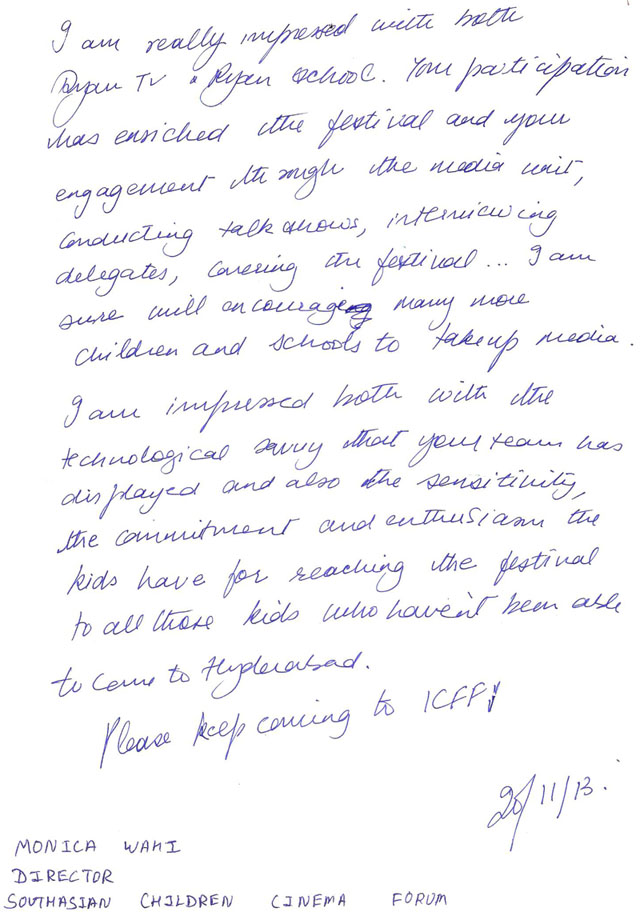 I am really impressed with both
Ryan TV & Ryan School. Your participation
has enriched the festival and your
engagement through the media unit,
conducting talk shows, interviewing
delegates, covering the festival... I am
sure will encourage many more
children and schools to take up media.
I am impressed both with the
technological savvy that your team has
displayed and also the sensitivity,
the commitment and enthusiasm the
kids have for reaching the festival
to all those kids who haven't been able
to come to Hyderabad.
Please keep coming to ICFF!
20/11/13.
MONICA WAHI
DIRECTOR
SOUTHASIAN CHILDREN CINEMA FORUM